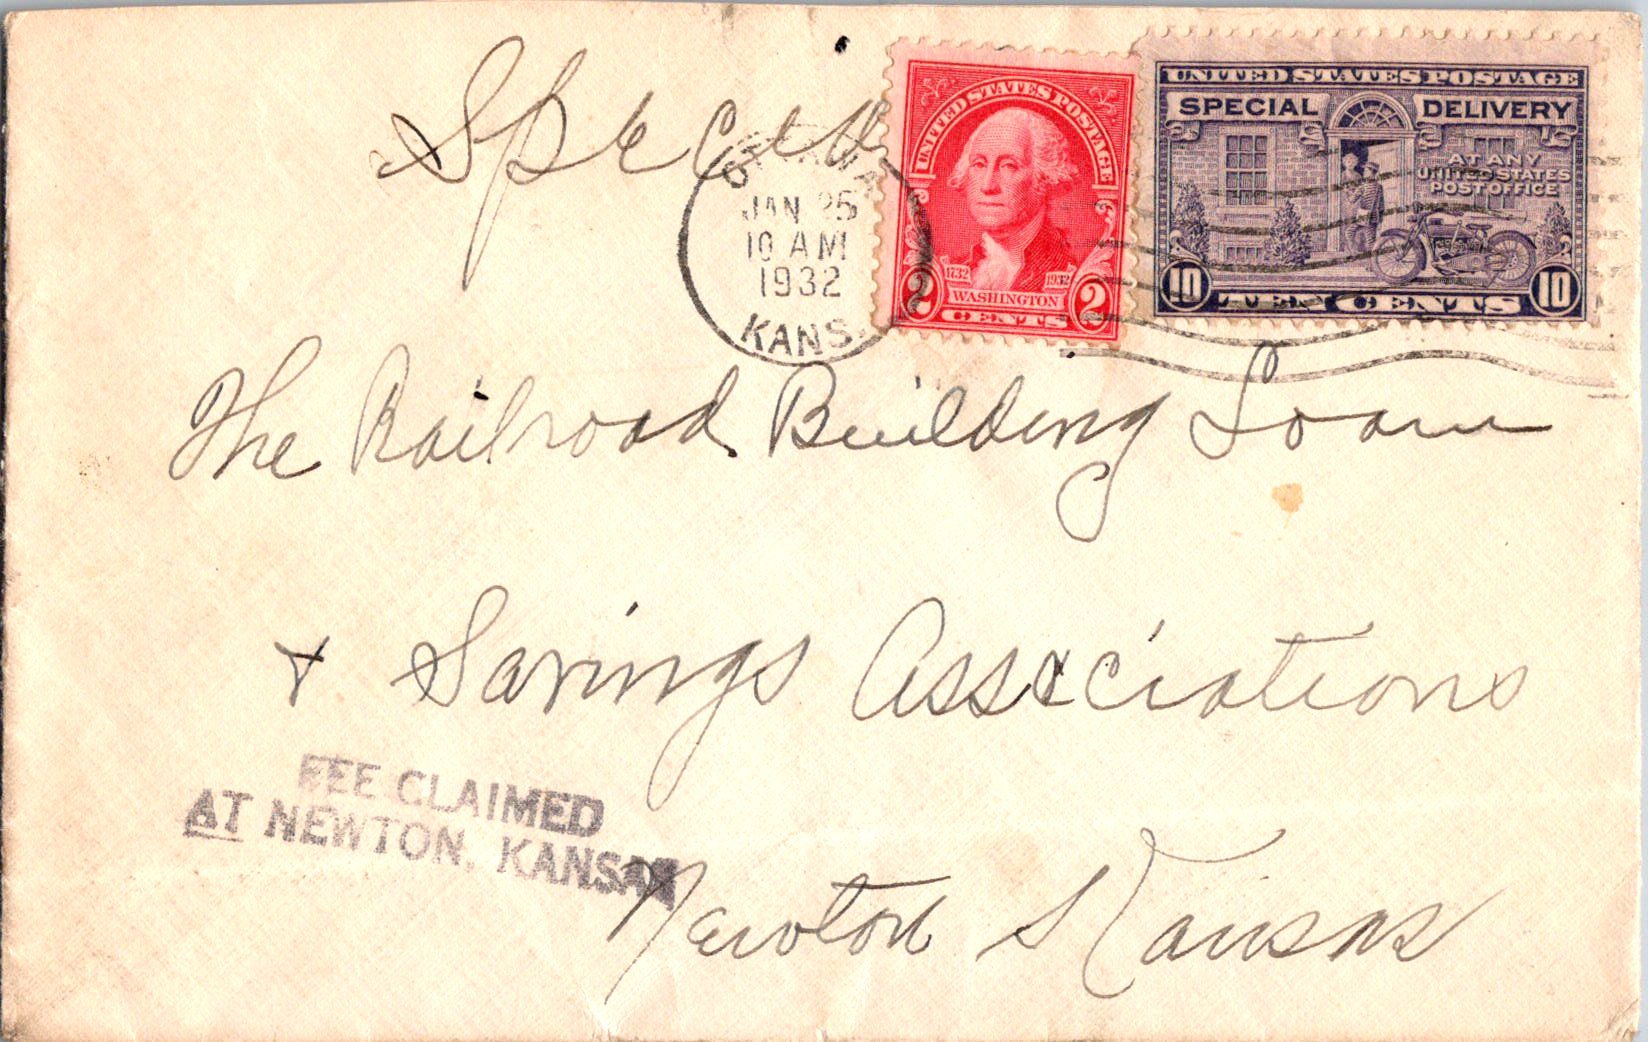 Special
OTTAWA
JAN 25
10 AM
1932
KANS.
UNITED STATES POSTAGE
1732 1932
WASHINGTON
2 2
CENTS
UNITED STATES POSTAGE
SPECIAL DELIVERY
AT ANY
UNITED STATES
POST OFFICE
10 TEN CENTS 10
The Railroad Building Loan
& Savings Associations
FEE CLAIMED
AT NEWTON, KANSAS
Newton Kansas